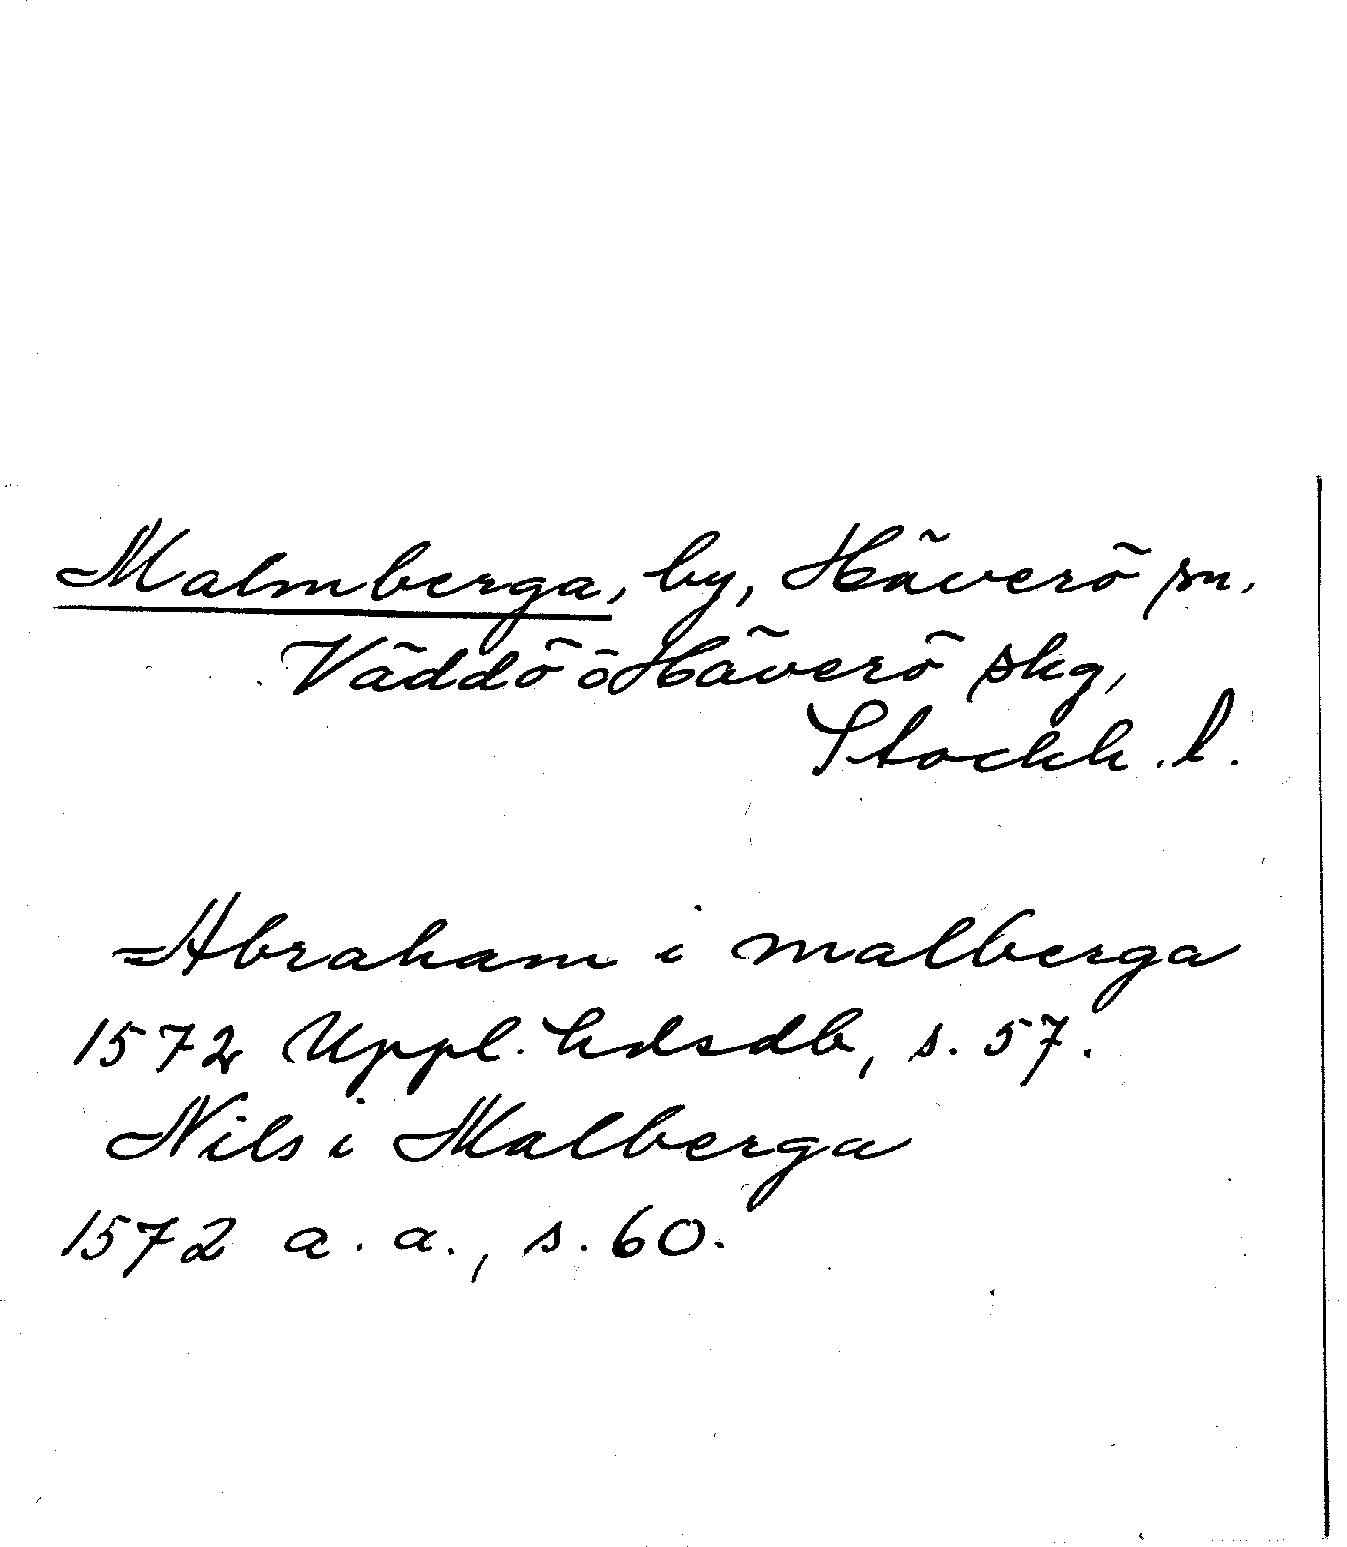 Malmberga, by, Häverö sn.
Väddö o Häverö skg,
Stockh. l.
Abraham i malberga
1572 Uppl. hdsdb, s. 57.
Nils i Malberga
1572 a. a., s. 60.